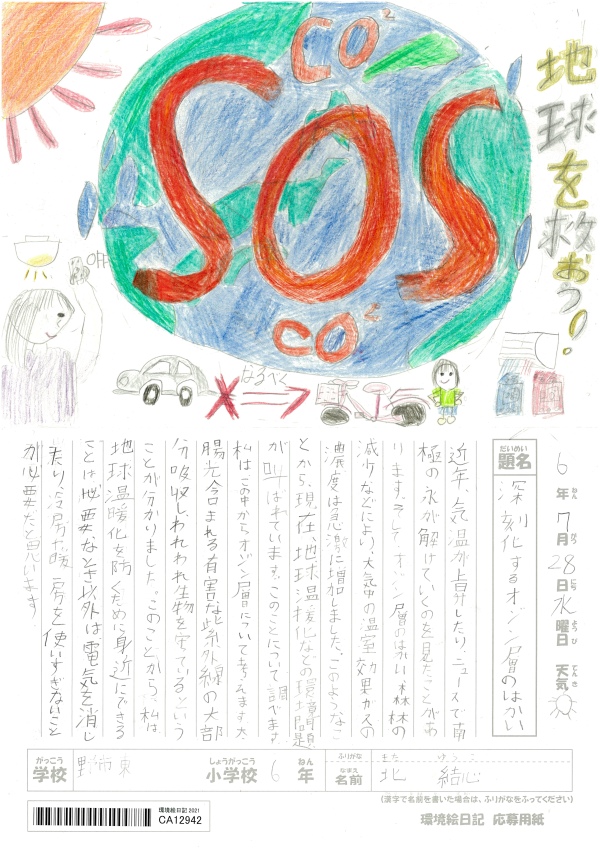 地球を救おう!
CO²
SOS
CO²
OFF
なるべく
6年7月28日水曜日 天気
ねん
がつ
にち
ようび
てんき
だいめい
題名
深刻化するオゾン層のはかい
近年、気温が上昇したり、ニュースで南
極の氷が解けていくのを見たことがあ
ります。そして、オゾン層のはかい、森林の
減少などにより、大気中の温室効果ガスの
濃度は急激に増加しました。このようなこ
とから、現在、地球温暖化などの環境問題
が叫ばれています。このことについて調べます。
私は、この中からオゾン層について考えます。太
陽光含まれる有害な紫外線の大部
分吸収し、われわれ生物を守っているという
ことが分かりました。このことから、私は
地球温暖化を防ぐために身近にできる
ことは、必要なとき以外は、電気を消し
たり、冷房や暖房を使いすぎないこと
が必要だと思います。
がっこう
学校
野市東
しょうがっこう
小学校
6
ねん
年
ふりがな
きた ゆう
なまえ
名前
北 結心
(漢字で名前を書いた場合は、ふりがなをふってください)
環境絵日記 2021
CA12942
環境絵日記 応募用紙